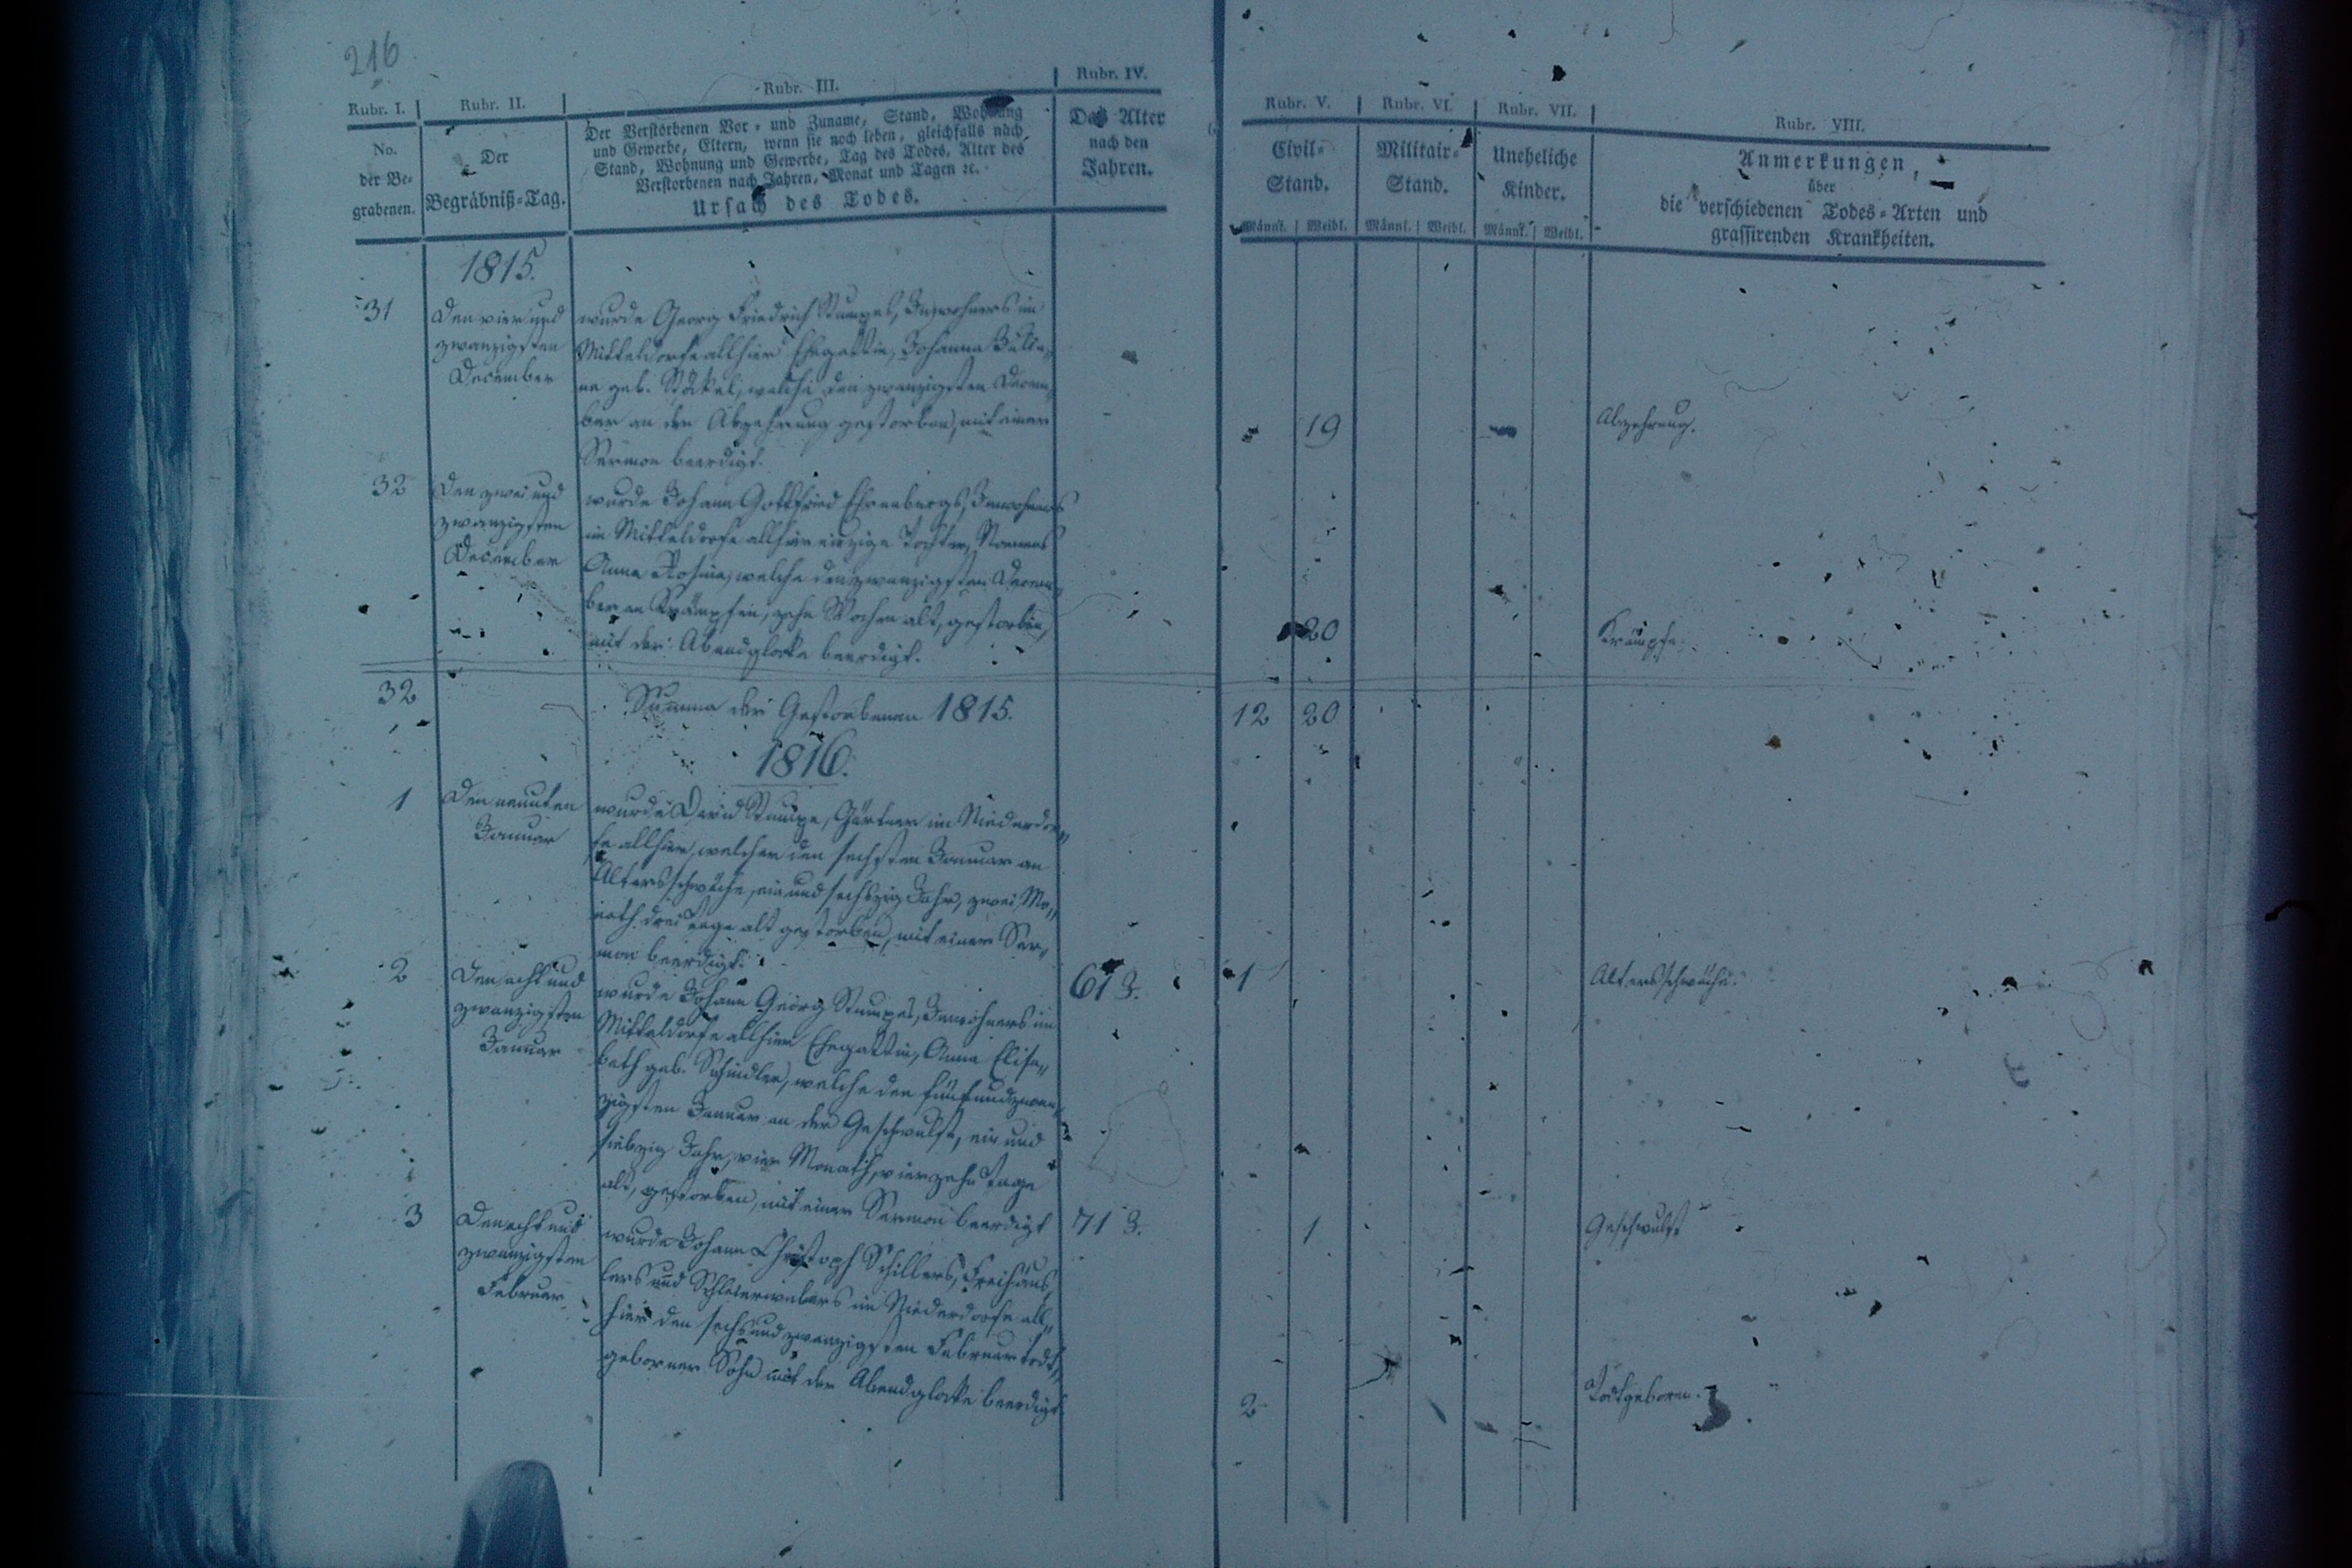 216
Rubr. I. Rubr. II. Rubr. III. Rubr. IV. Rubr. V. Rubr. VI. Rubr. VII. Rubr. VIII.
No.
der Be=
grabenen.
Der
Begräbniß=Tag.
Der Verstorbenen Vor= und Zuname, Stand, Wohnung
und Gewerbe, Eltern, wenn sie noch leben, gleichfalls nach
Stand, Wohnung und Gewerbe, Tag des Todes, Alter des
Verstorbenen nach Jahren, Monat und Tagen ꝛc.
Ursach des Todes.
Das Alter
nach den
Jahren.
Civil=
Stand.
Männl. Weibl.
Militair=
Stand.
Männl. Weibl.
Uneheliche
Kinder.
Männl. Weibl.
Anmerkungen,
über
die verschiedenen Todes=Arten und
grassirenden Krankheiten.
1815.
31
Den vier und
zwanzigsten
December
wurde Georg Friedrich Stumpes, Inwohners im
Mitteldorfe allhier Ehegattin, Johanna Julia„
ne geb. welche den zwanzigsten Decem„
ber an der Abzehrung gestorben, mit einer
Sermon beerdigt.
19
Abzehrung.
32
Den zwei und
zwanzigsten
December
wurde Johann Gottfried Ehrenbergs, Inwohners
im Mitteldorfe allhier einzige Tochter, Namens
Anna Rosina, welche den zwanzigsten Decem„
ber an Krämpfen, zehn Wochen alt, gestorben,
mit der Abendglocke beerdigt.
20
Krämpfe.
32 Summa der Gestorbenen 1815. 12 20
1816.
1
Den neunten
Januar
wurde David Stumpe, Gärtner im Niederdor„
fe allhier, welcher den sechsten Januar an
Altersschwäche, ein und sechszig Jahr, zwei Mo„
nath drei Tage alt gestorben, mit einer Ser„
mon beerdigt.
61 J. 1 Altersschwäche.
2
Den acht und
zwanzigsten
Januar
wurde Johann Georg Stumpes, Inwohners im
Mitteldorfe allhier Ehegattin, Anna Elisa„
beth geb. Schindler, welche den fünf und zwan„
zigsten Januar an der Geschwulst, ein und
siebzig Jahr, vier Monath, vierzehn Tage
alt, gestorben, mit einer Sermon beerdigt
71 J. 1 Geschwulst
3
Den acht und
zwanzigsten
Februar
wurde Johann Christoph Schillers, Freihäus„
lers und Schleierwebers im Niederdorfe all„
hier den sechs und zwanzigsten Februar todt„
geborner Sohn mit der Abendglocke beerdigt.
2 Todtgeboren.